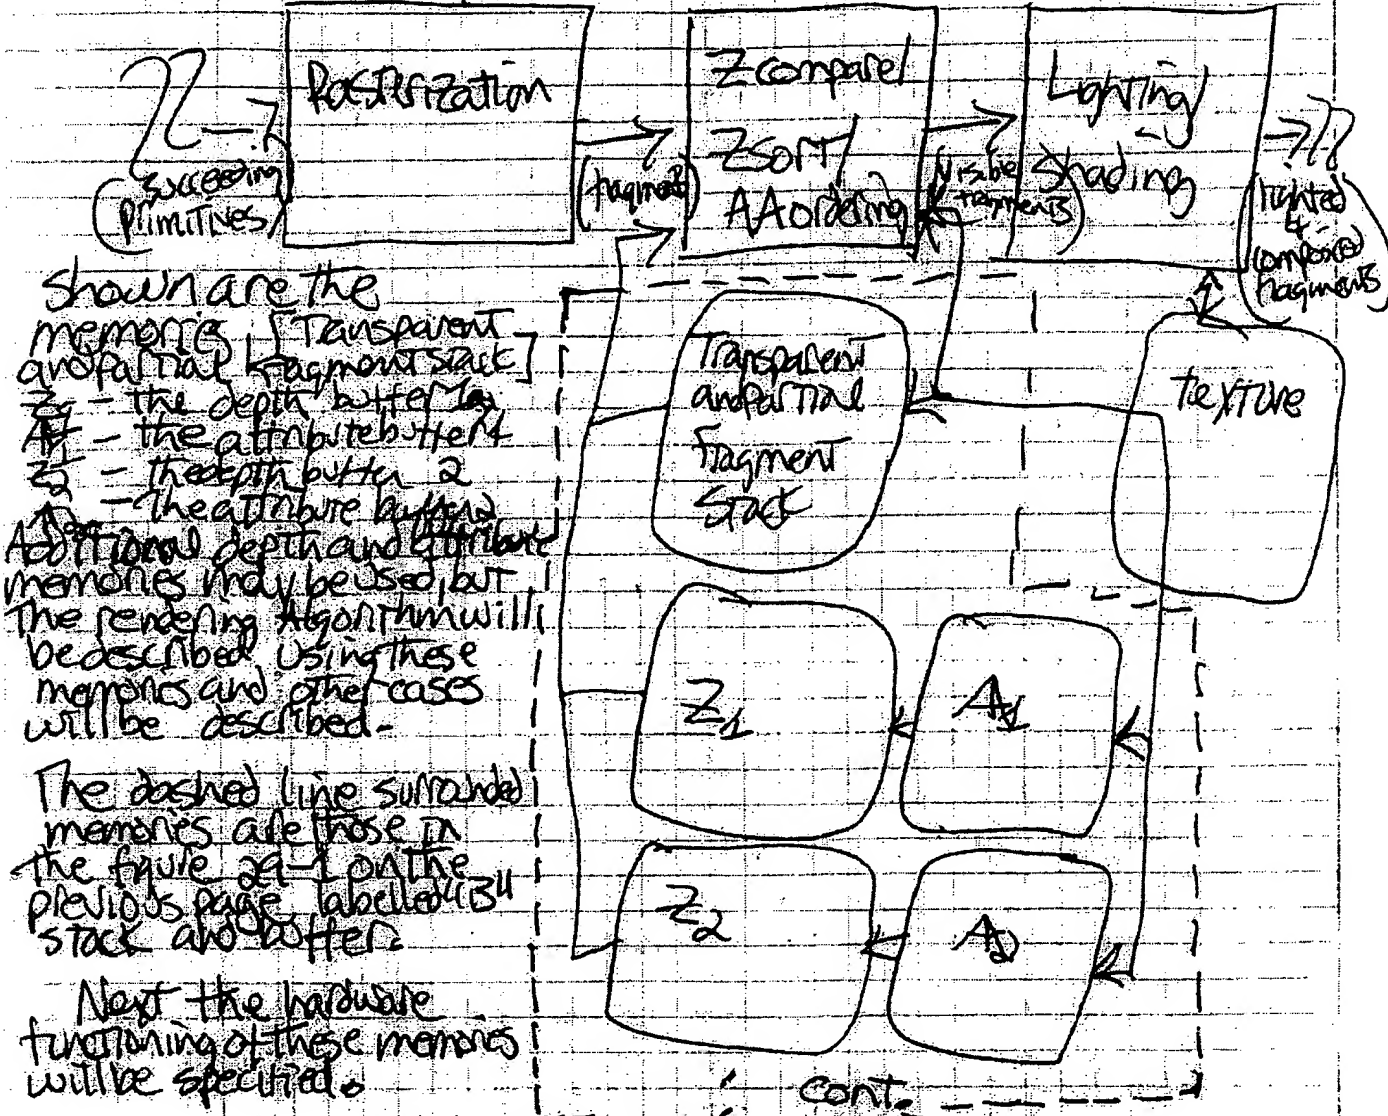 Rasterization
Zcompare/
Zsort/
AAordering
Lighting/
Shading
(succeeding
primitives)
(fragments)
(Visible
fragments)
(lighted
&
composed
fragments)
Shown are the
memories [Transparent
and Partial Fragment Stack]
- the depth buffer
- the attribute buffer 1
Z2 - the depth buffer 2
- The attribute buffer 2
Additional depth and attribute
memories may be used, but
The rendering Algorithm will
be described using these
memories and other cases
will be described.
The dashed line surrounded
memories are those in
the figure 2a-1 on the
previous page labelled "B"
stack and buffer.
Next the hardware
functioning of these memories
will be specified.
Transparent
and Partial
Fragment
Stack
Texture
Z1
A1
Z2
A2
cont.